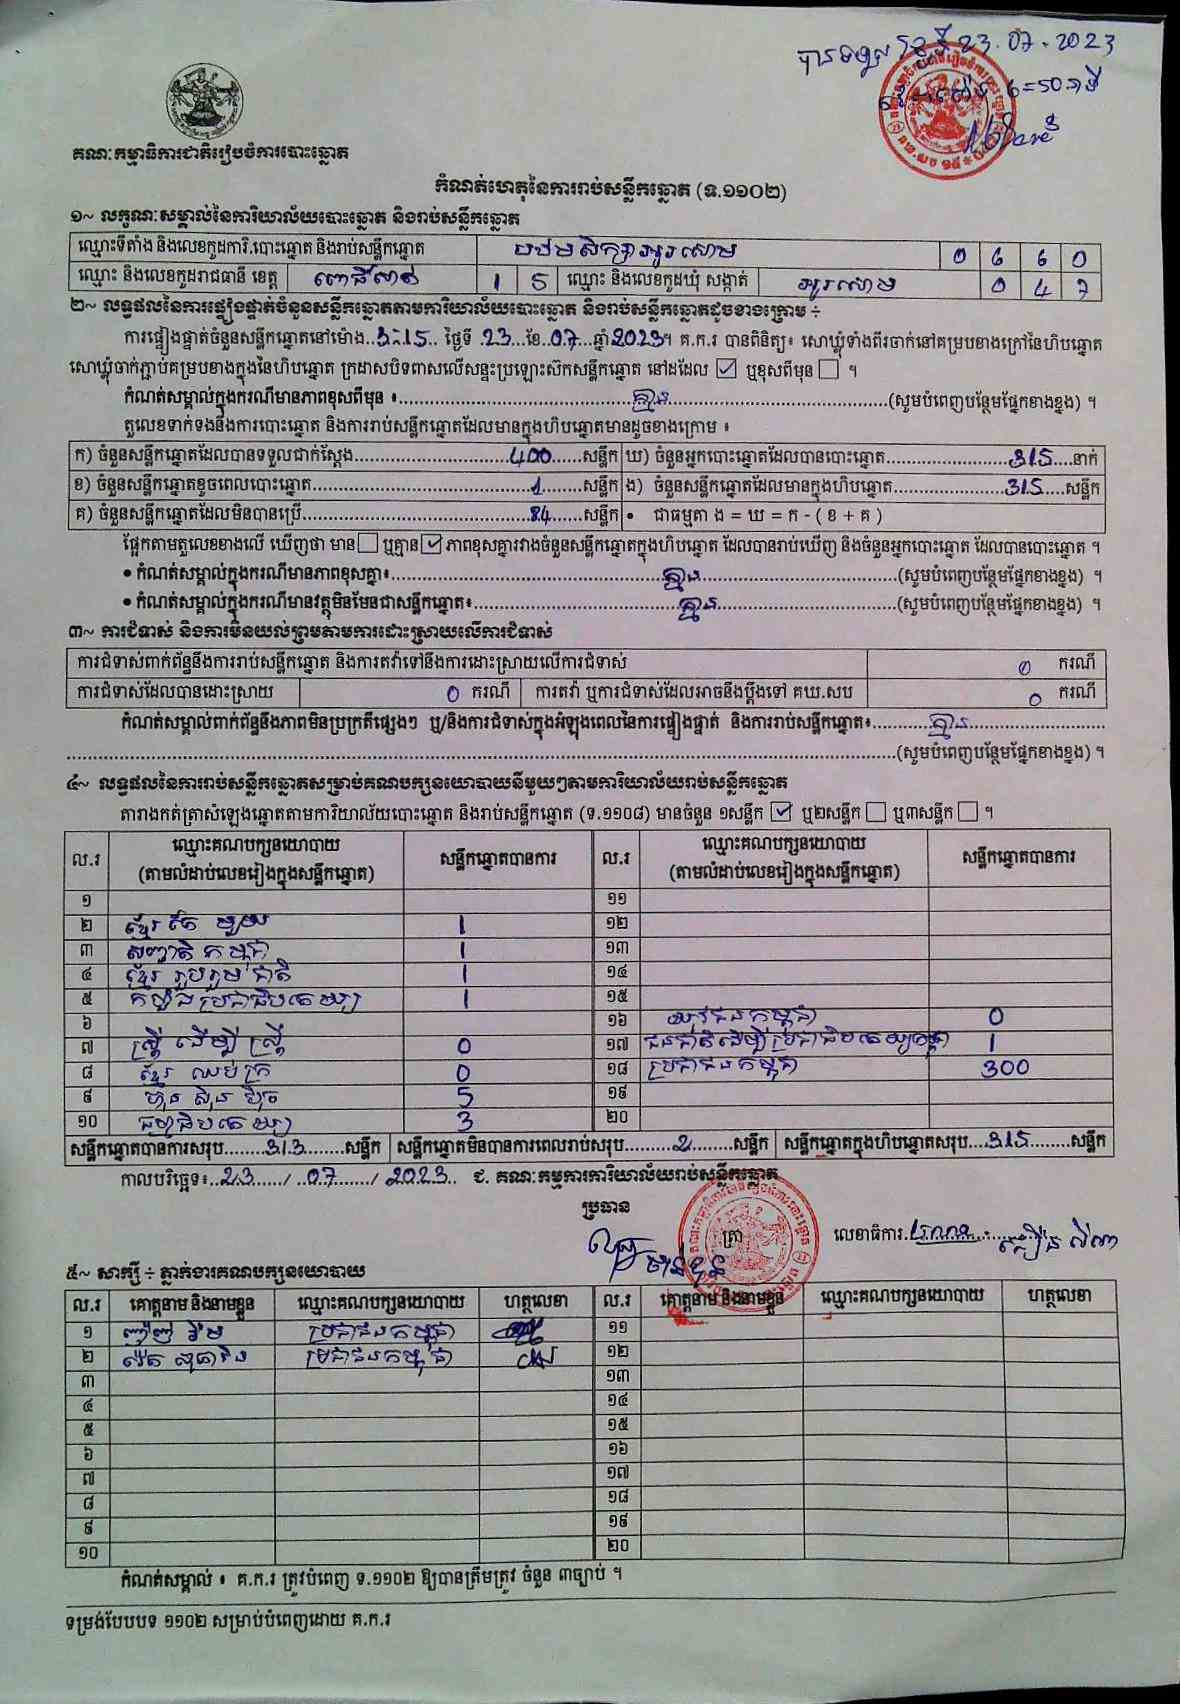 បានទទួល ថ្ងៃទី 23.07.2023
គណៈកម្មាធិការជាតិរៀបចំការបោះឆ្នោត
កំណត់ហេតុនៃការរាប់សន្លឹកឆ្នោត (ទ.១១០២)
១~ លក្ខណៈសម្គាល់នៃការិយាល័យបោះឆ្នោត និងរាប់សន្លឹកឆ្នោត
ឈ្មោះទីតាំង និងលេខកូដការិ.បោះឆ្នោត និងរាប់សន្លឹកឆ្នោត បឋមសិក្សាអូរសោម 0 6 6 0
ឈ្មោះ និងលេខកូដរាជធានី ខេត្ត ពោធិ៍សាត់ 1 5 ឈ្មោះ និងលេខកូដឃុំ សង្កាត់ អូរសោម 0 4 7
២~ លទ្ធផលនៃការផ្ទៀងផ្ទាត់ចំនួនសន្លឹកឆ្នោតតាមការិយាល័យបោះឆ្នោត និងរាប់សន្លឹកឆ្នោតដូចខាងក្រោម ÷
ការផ្ទៀងផ្ទាត់ចំនួនសន្លឹកឆ្នោតនៅម៉ោង..3:15.. ថ្ងៃទី .23...ខែ..07...ឆ្នាំ2023។ គ.ក.រ បានពិនិត្យ៖ សោឃ្លុំទាំងពីរចាក់នៅគម្របខាងក្រៅនៃហិបឆ្នោត
សោឃ្លុំចាក់ភ្ជាប់គម្របខាងក្នុងនៃហិបឆ្នោត ក្រដាសបិទពាសលើសន្ទះប្រឡោះស៊កសន្លឹកឆ្នោត នៅដដែល ☑ ឬខុសពីមុន ☐ ។
កំណត់សម្គាល់ក្នុងករណីមានភាពខុសពីមុន ៖........គ្មាន........(សូមបំពេញបន្ថែមផ្នែកខាងខ្នង) ។
តួលេខទាក់ទងនឹងការបោះឆ្នោត និងការរាប់សន្លឹកឆ្នោតដែលមានក្នុងហិបឆ្នោតមានដូចខាងក្រោម ៖
ក) ចំនួនសន្លឹកឆ្នោតដែលបានទទួលជាក់ស្តែង........400......សន្លឹក ឃ) ចំនួនអ្នកបោះឆ្នោតដែលបានបោះឆ្នោត........315.....នាក់
ខ) ចំនួនសន្លឹកឆ្នោតខូចពេលបោះឆ្នោត........1......សន្លឹក ង) ចំនួនសន្លឹកឆ្នោតដែលមានក្នុងហិបឆ្នោត........315.....សន្លឹក
គ) ចំនួនសន្លឹកឆ្នោតដែលមិនបានប្រើ........84......សន្លឹក • ជាធម្មតា ង = ឃ = ក - ( ខ + គ )
ផ្អែកតាមតួលេខខាងលើ ឃើញថា មាន ☐ ឬគ្មាន ☑ ភាពខុសគ្នារវាងចំនួនសន្លឹកឆ្នោតក្នុងហិបឆ្នោត ដែលបានរាប់ឃើញ និងចំនួនអ្នកបោះឆ្នោត ដែលបានបោះឆ្នោត ។
• កំណត់សម្គាល់ក្នុងករណីមានភាពខុសគ្នា៖........គ្មាន........(សូមបំពេញបន្ថែមផ្នែកខាងខ្នង) ។
• កំណត់សម្គាល់ក្នុងករណីមានវត្ថុមិនមែនជាសន្លឹកឆ្នោត៖........គ្មាន........(សូមបំពេញបន្ថែមផ្នែកខាងខ្នង) ។
៣~ ការជំទាស់ និងការមិនយល់ព្រមតាមការដោះស្រាយលើការជំទាស់
ការជំទាស់ពាក់ព័ន្ធនឹងការរាប់សន្លឹកឆ្នោត និងការតវ៉ាទៅនឹងការដោះស្រាយលើការជំទាស់ 0 ករណី
ការជំទាស់ដែលបានដោះស្រាយ 0 ករណី ការតវ៉ា ឬការជំទាស់ដែលអាចនឹងប្តឹងទៅ គឃ.សប 0 ករណី
កំណត់សម្គាល់ពាក់ព័ន្ធនឹងភាពមិនប្រក្រតីផ្សេងៗ ឬ/និងការជំទាស់ក្នុងអំឡុងពេលនៃការផ្ទៀងផ្ទាត់ និងការរាប់សន្លឹកឆ្នោត៖........គ្មាន........
........(សូមបំពេញបន្ថែមផ្នែកខាងខ្នង) ។
៤~ លទ្ធផលនៃការរាប់សន្លឹកឆ្នោតសម្រាប់គណបក្សនយោបាយនីមួយៗតាមការិយាល័យរាប់សន្លឹកឆ្នោត
តារាងកត់ត្រាសំឡេងឆ្នោតតាមការិយាល័យបោះឆ្នោត និងរាប់សន្លឹកឆ្នោត (ទ.១១០៨) មានចំនួន ១សន្លឹក ☑ ឬ២សន្លឹក ☐ ឬ៣សន្លឹក ☐ ។
ល.រ ឈ្មោះគណបក្សនយោបាយ សន្លឹកឆ្នោតបានការ ល.រ ឈ្មោះគណបក្សនយោបាយ សន្លឹកឆ្នោតបានការ
(តាមលំដាប់លេខរៀងក្នុងសន្លឹកឆ្នោត) (តាមលំដាប់លេខរៀងក្នុងសន្លឹកឆ្នោត)
១ ១១
២ ខ្មែរតែមួយ 1 ១២
៣ សញ្ជាតិកម្ពុជា 1 ១៣
៤ ខ្មែររួបរួមជាតិ 1 ១៤
៥ កម្លាំងប្រជាធិបតេយ្យ 1 ១៥
៦ ១៦ យុវជនកម្ពុជា 0
៧ ស្ត្រីដើម្បីស្ត្រី 0 ១៧ ជនជាតិដើម្បីប្រជាធិបតេយ្យកម្ពុជា 1
៨ ខ្មែរឈប់ក្រ 0 ១៨ ប្រជាជនកម្ពុជា 300
៩ ហ៊្វុនស៊ិនប៉ិច 5 ១៩
១០ ធម្មាធិបតេយ្យ 3 ២០
សន្លឹកឆ្នោតបានការសរុប........313........សន្លឹក សន្លឹកឆ្នោតមិនបានការពេលរាប់សរុប........2........សន្លឹក សន្លឹកឆ្នោតក្នុងហិបឆ្នោតសរុប....315........សន្លឹក
កាលបរិច្ឆេទ៖..23....../ ..07....../ 2023.. ជ. គណៈកម្មការការិយាល័យរាប់សន្លឹកឆ្នោត
ប្រធាន
ត្រា លេខាធិការ
៥~ សាក្សី ÷ ភ្នាក់ងារគណបក្សនយោបាយ
ល.រ គោត្តនាម និងនាមខ្លួន ឈ្មោះគណបក្សនយោបាយ ហត្ថលេខា ល.រ គោត្តនាម និងនាមខ្លួន ឈ្មោះគណបក្សនយោបាយ ហត្ថលេខា
១ ប្រជាជនកម្ពុជា ១១
២ ប្រជាជនកម្ពុជា ១២
៣ ១៣
៤ ១៤
៥ ១៥
៦ ១៦
៧ ១៧
៨ ១៨
៩ ១៩
១០ ២០
កំណត់សម្គាល់ ៖ គ.ក.រ ត្រូវបំពេញ ទ.១១០២ ឱ្យបានត្រឹមត្រូវ ចំនួន ៣ច្បាប់ ។
ទម្រង់បែបបទ ១១០២ សម្រាប់បំពេញដោយ គ.ក.រ